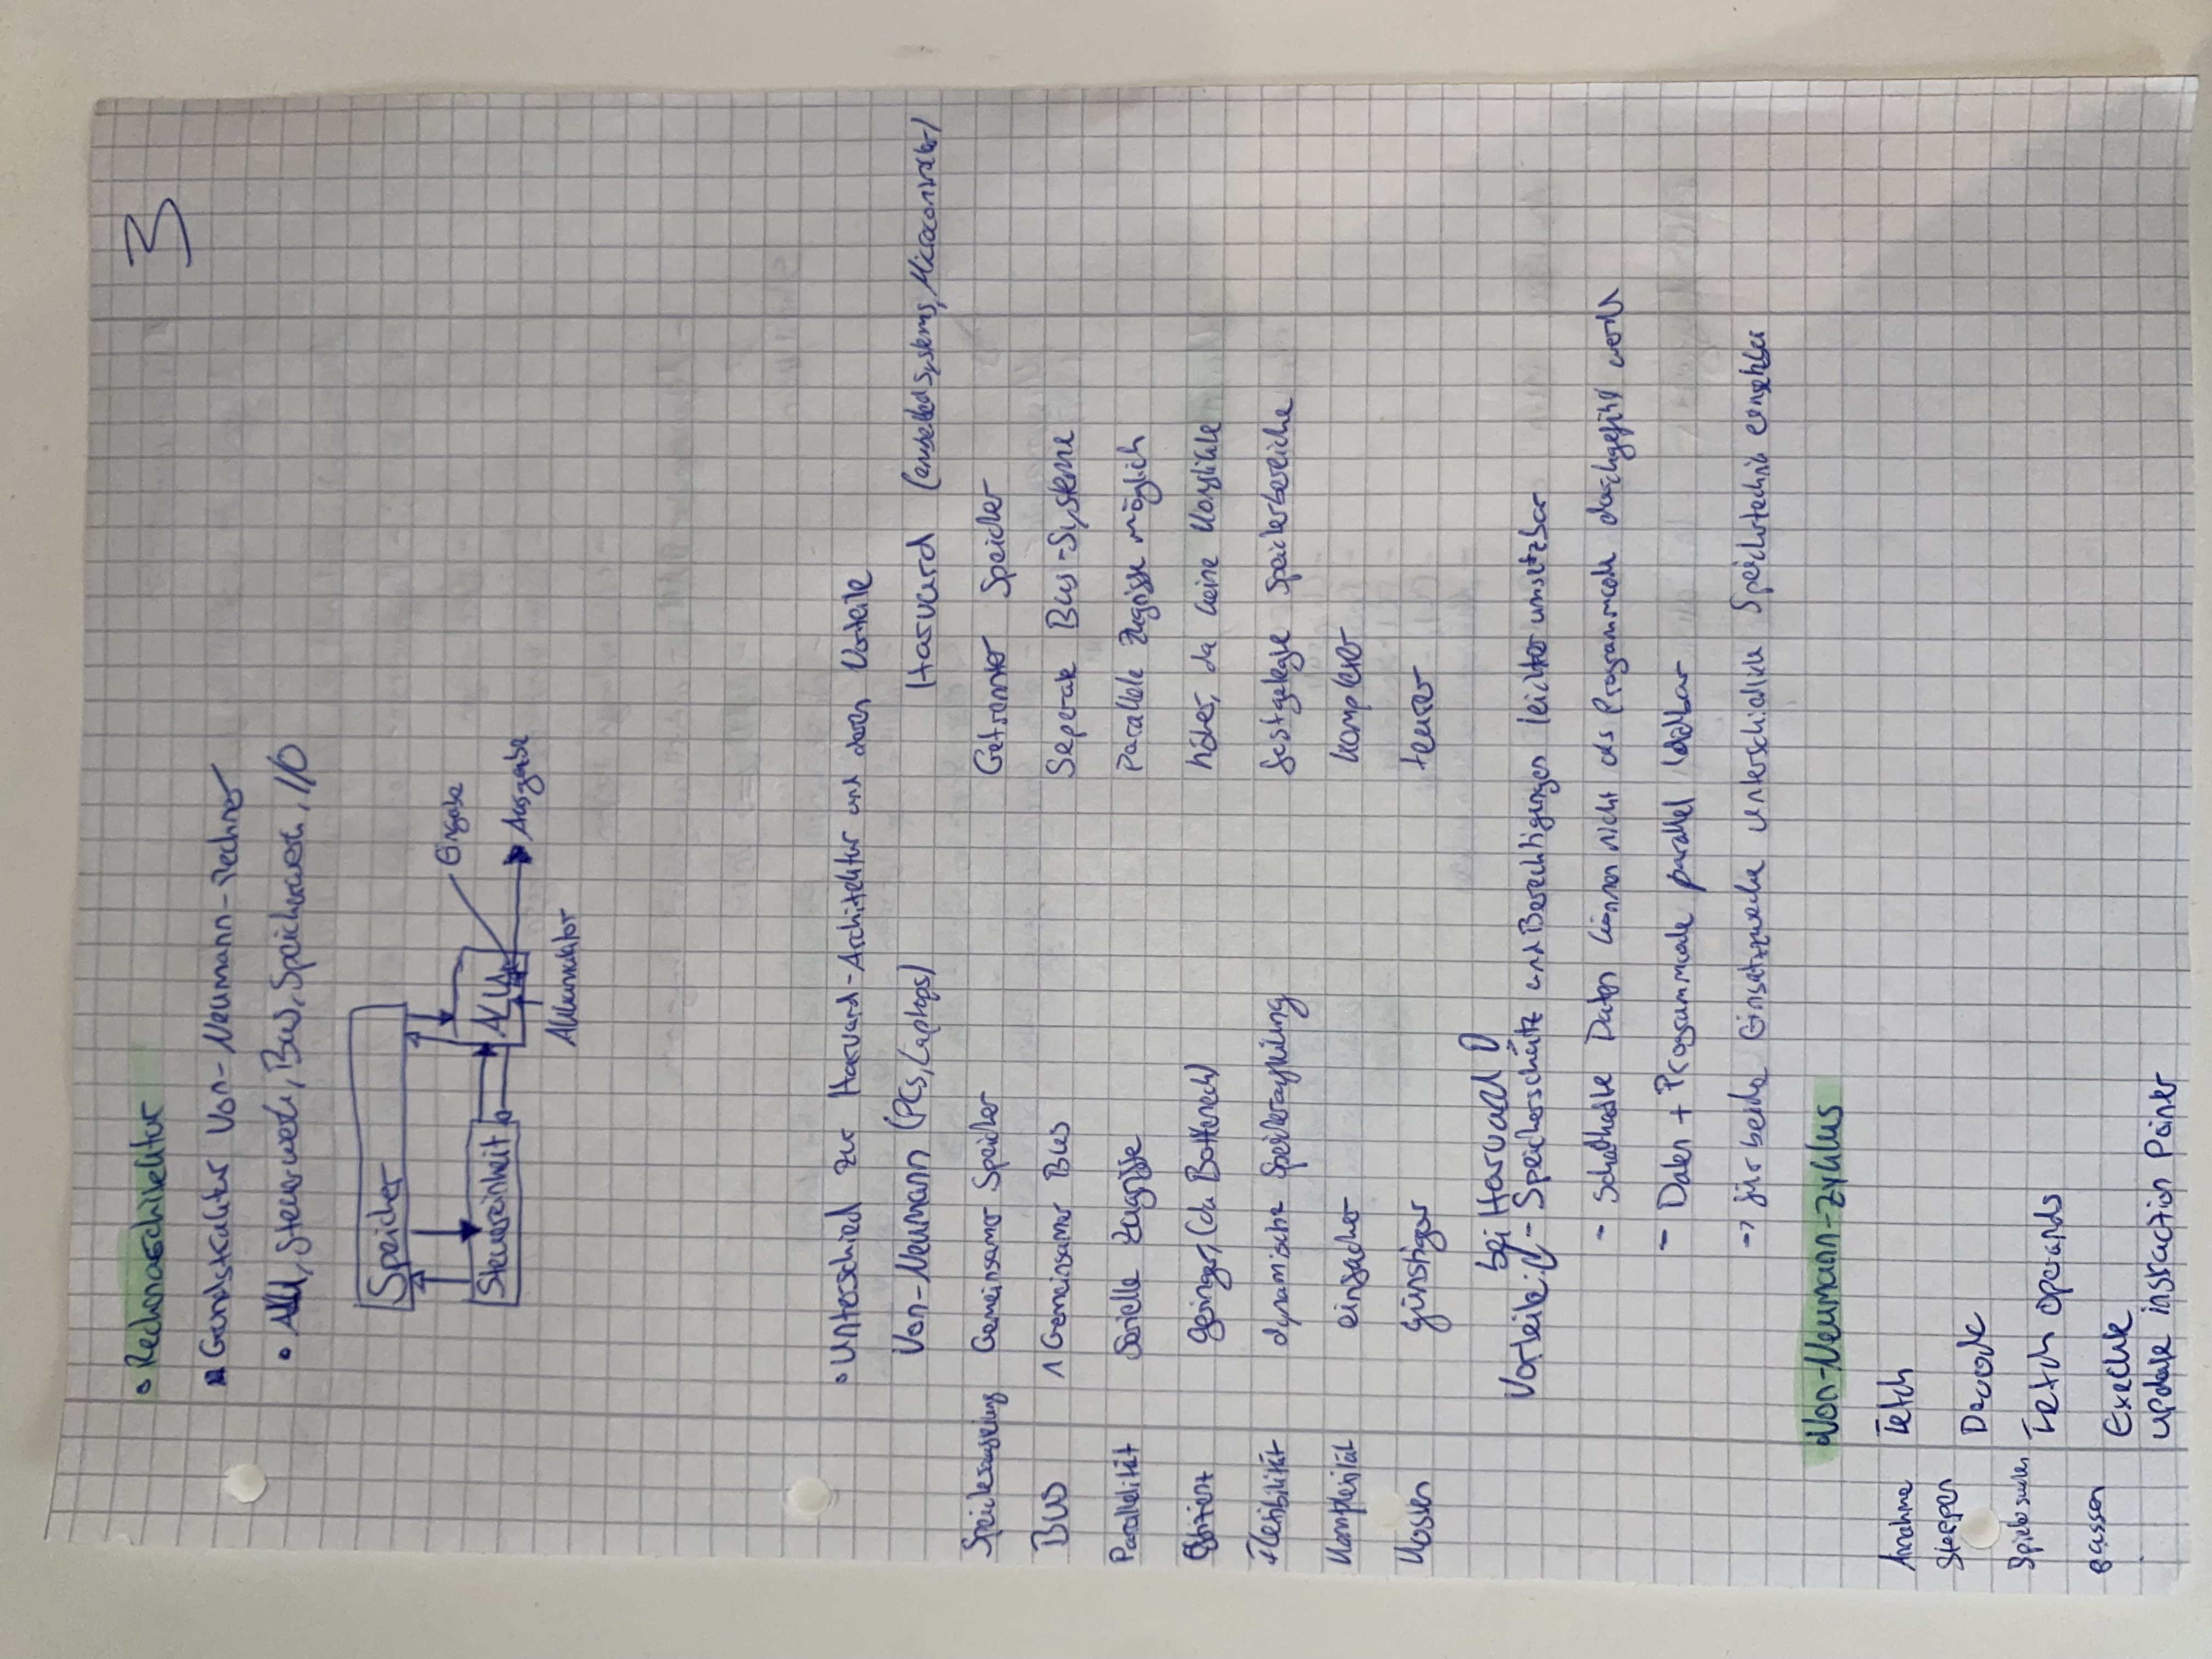 3
• Rechnerarchitektur
Grundstruktur Von-Neumann-Rechner
• ALU, Steuerwerk, Bus, Speicherwerk, I/O
Speicher
Steuereinheit
ALU
Eingabe
Ausgabe
Akkumulator
• Unterschied zur Harvard-Architektur und deren Vorteile
Von-Neumann (PCs, Laptops) Harvard (embedded Systems, Microcontroller)
Gemeinsamer Speicher Getrennter Speicher
BUS 1 Gemeinsamer Bus Seperate Bus-Systeme
Parallelität Serielle Zugriffe Parallele Zugriffe möglich
Effizienz geringer (da Bottleneck) höher, da keine Konflikte
Flexibilität dynamische Speicheraufteilung festgelegte Speicherbereiche
Komplexität einfacher komplexer
Kosten günstiger teurer
Vorteile bei Harvard
- Speicherschutz und Berechtigungen leichter umsetzbar
- Schadhafte Daten können nicht als Programmcode durchgeführt werden
- Daten + Programmcode parallel ladbar
-> für beide Einsatzzwecke unterschiedliche Speichertechnik
• Von-Neumann-Zyklus
Annahme Fetch
Decode
Fetch operands
passen Execute
update instruction Pointer